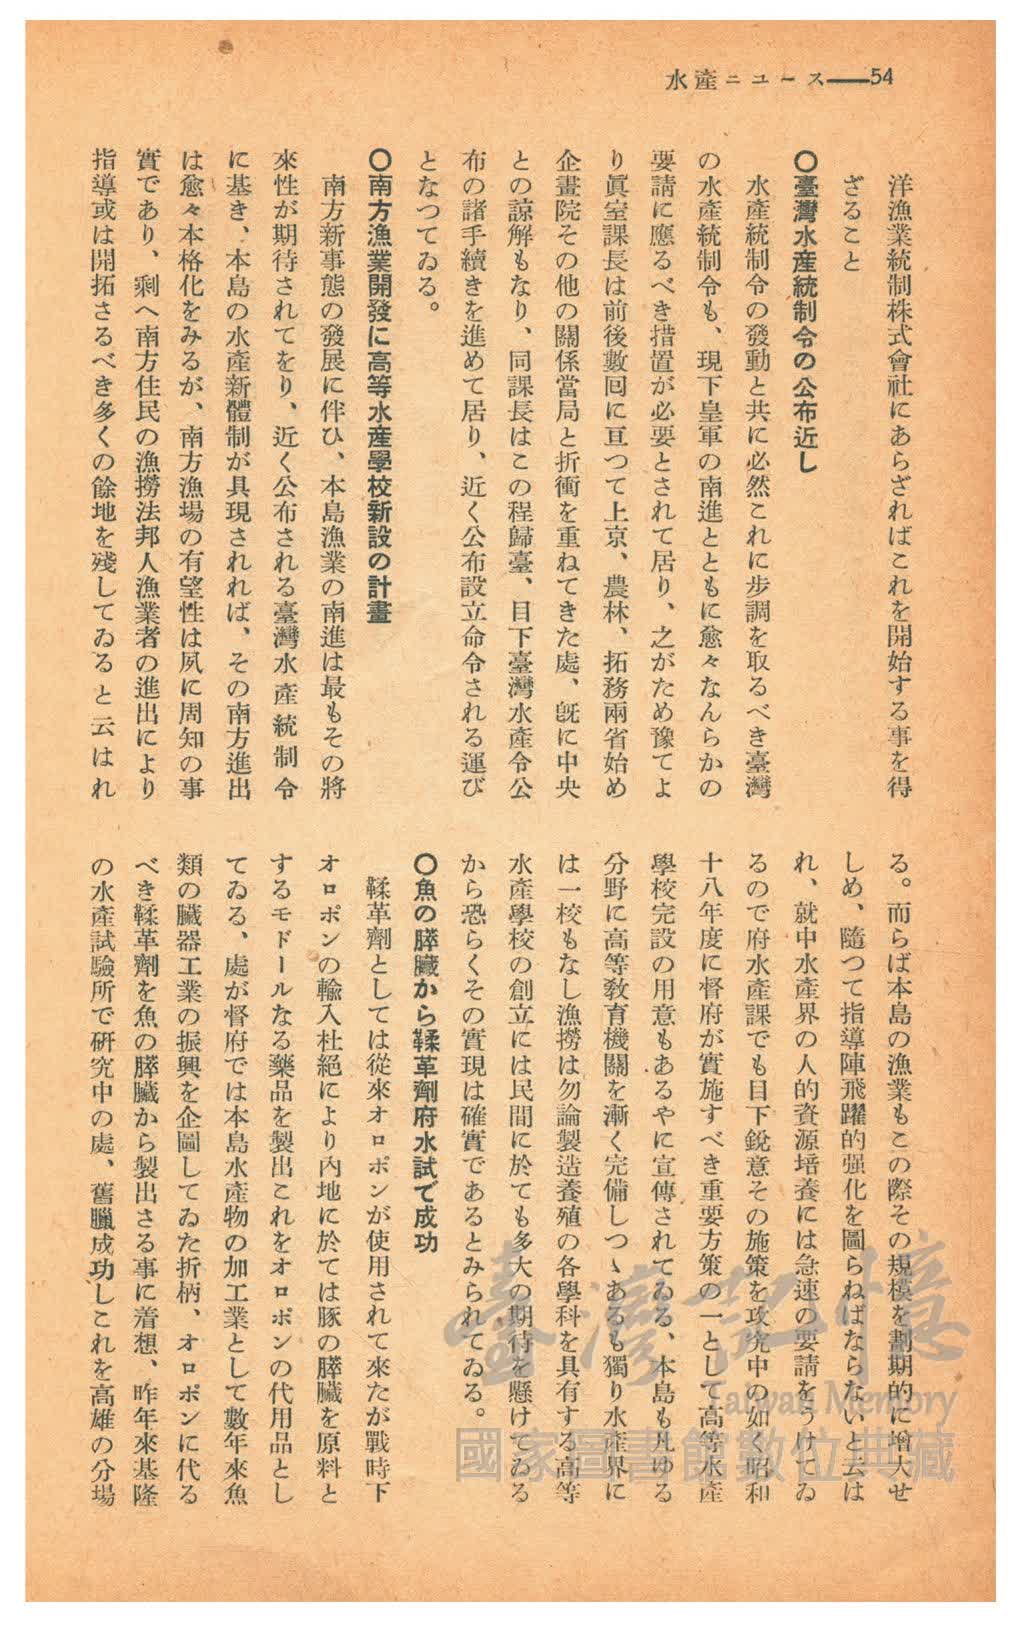 水產ニユース――54
洋漁業統制株式會社にあらざればこれを開始する事を得
ざること
〇臺灣水産統制令の公布近し
水產統制令の發動と共に必然これに步調を取るべき臺灣
の水產統制令も、現下皇軍の南進とともに愈々なんらかの
要請に應るべき措置が必要とされて居り、之がため豫てよ
り眞室課長は前後數囘に亘つて上京、農林、拓務兩省始め
企畫院その他の關係當局と折衝を重ねてきた處、旣に中央
との諒解もなり、同課長はこの程歸臺、目下臺灣水產令公
布の諸手續きを進めて居り、近く公布設立命令される運び
となつてゐる。
〇南方漁業開發に高等水産學校新設の計畫
南方新事態の發展に伴ひ、本島漁業の南進は最もその將
來性が期待されてをり、近く公布される臺灣水產統制令
に基き、本島の水產新體制が具現されれば、その南方進出
は愈々本格化をみるが、南方漁場の有望性は夙に周知の事
實であり、剩へ南方住民の漁撈法邦人漁業者の進出により
指導或は開拓さるべき多くの餘地を殘してゐると云はれ
る。而らば本島の漁業もこの際その規模を劃期的に增大せ
しめ、隨つて指導陣飛躍的强化を圖らねばならないと云は
れ、就中水產界の人的資源培養には急速の要請をうけてゐ
るので府水產課でも目下銳意その施策を攻究中の如く昭和
十八年度に督府が實施すべき重要方策の一として高等水產
學校完設の用意もあるやに宣傳されてゐる、本島も凡ゆる
分野に高等教育機關を漸く完備しつゝあるも獨り水產界に
は一校もなし漁撈は勿論製造養殖の各學科を具有する高等
水產學校の創立には民間に於ても多大の期待を懸けてゐる
から恐らくその實現は確實であるとみられてゐる。
〇魚の膵臓から鞣革劑府水試で成功
鞣革劑としては從來オロポンが使用されて來たが戰時下
オロポンの輸入杜絕により內地に於ては豚の膵臟を原料と
するモドールなる藥品を製出これをオロポンの代用品とし
てゐる、處が督府では本島水產物の加工業として數年來魚
類の臟器工業の振興を企圖してゐた折柄、オロポンに代る
べき鞣革劑を魚の膵臟から製出さる事に着想、昨年來基隆
の水產試驗所で研究中の處、舊臘成功しこれを高雄の分場
臺灣記憶
Taiwan Memory
國家圖書館數位典藏